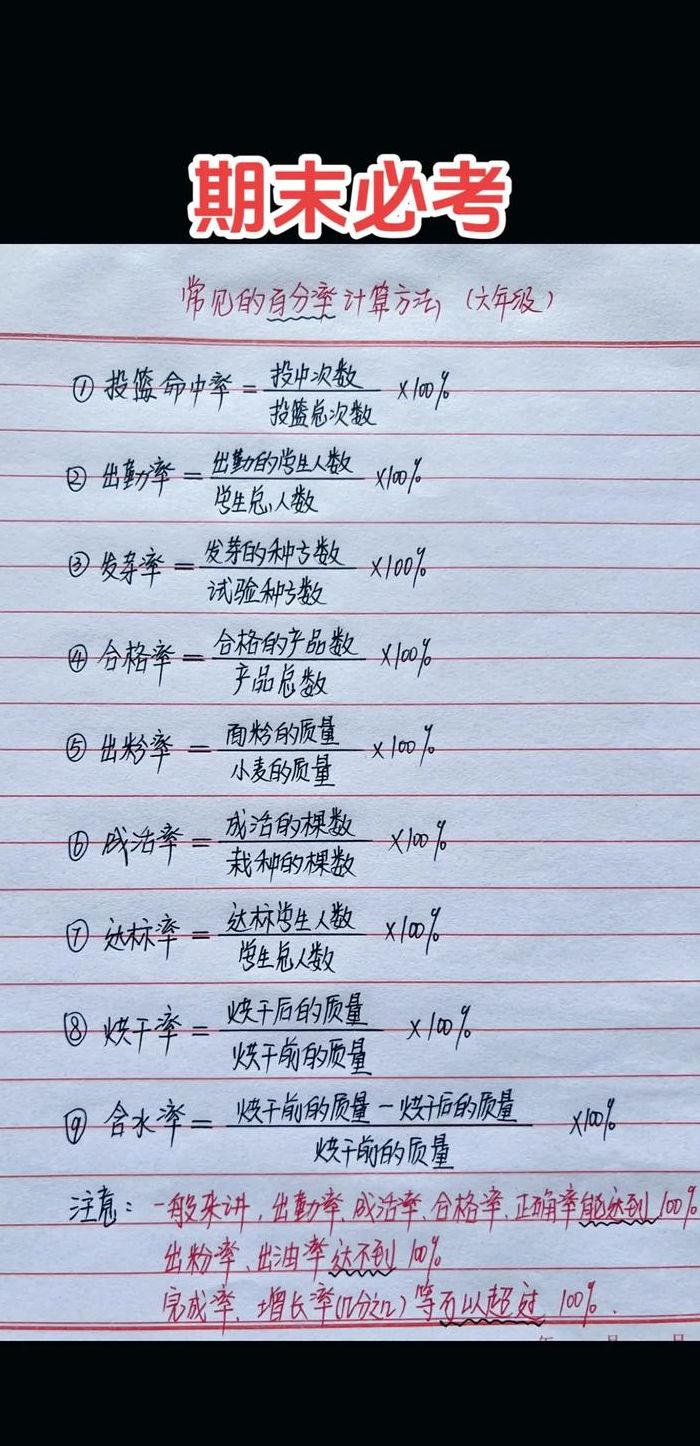 期末必考
常见的百分率计算方法（六年级）
① 投篮命中率 = 投中次数/投篮总次数 ×100%
② 出勤率 = 出勤的学生人数/学生总人数 ×100%
③ 发芽率 = 发芽的种子数/试验种子数 ×100%
④ 合格率 = 合格的产品数/产品总数 ×100%
⑤ 出粉率 = 面粉的质量/小麦的质量 ×100%
⑥ 成活率 = 成活的棵数/栽种的棵数 ×100%
⑦ 达标率 = 达标学生人数/学生总人数 ×100%
⑧ 烘干率 = 烘干后的质量/烘干前的质量 ×100%
⑨ 含水率 = 烘干前的质量－烘干后的质量/烘干前的质量 ×100%
注意：一般来讲，出勤率、成活率、合格率、正确率能达到100%
出粉率、出油率达不到100%
完成率、增长率(几分之几)等可以超过100%.
年 月 日